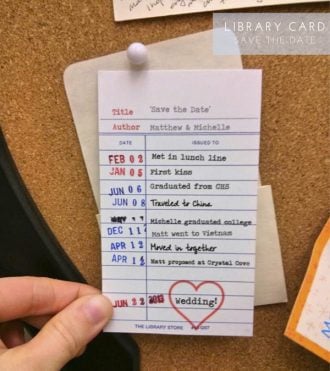 LIBRARY CARD
SAVE THE DATE
Title 'Save the Date'
Author Matthew & Michelle
DATE ISSUED TO
FEB 02 Met in lunch line
JAN 05 First kiss
JUN 06 Graduated from CHS
JUN 08 Traveled to China
Michelle graduated college
DEC 11 Matt went to Vietnam
APR 12 Moved in together
APR 12 Matt proposed at Crystal Cove
JUN 22 2013 Wedding!
THE LIBRARY STORE